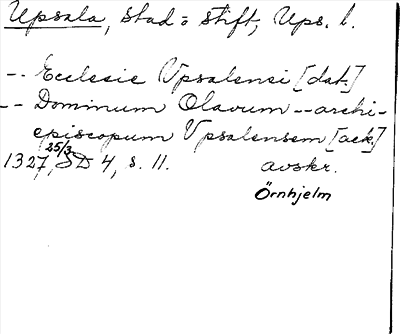 Upsala, stad o stift, Ups. l.
-- Ecclesie Vpsalensi [dat.]
-- Dominum Olavum -- archi-
episcopum Vpsalensem [ack.]
1327, 25/3, SD 4, s. 11. avskr.
Örnhjelm